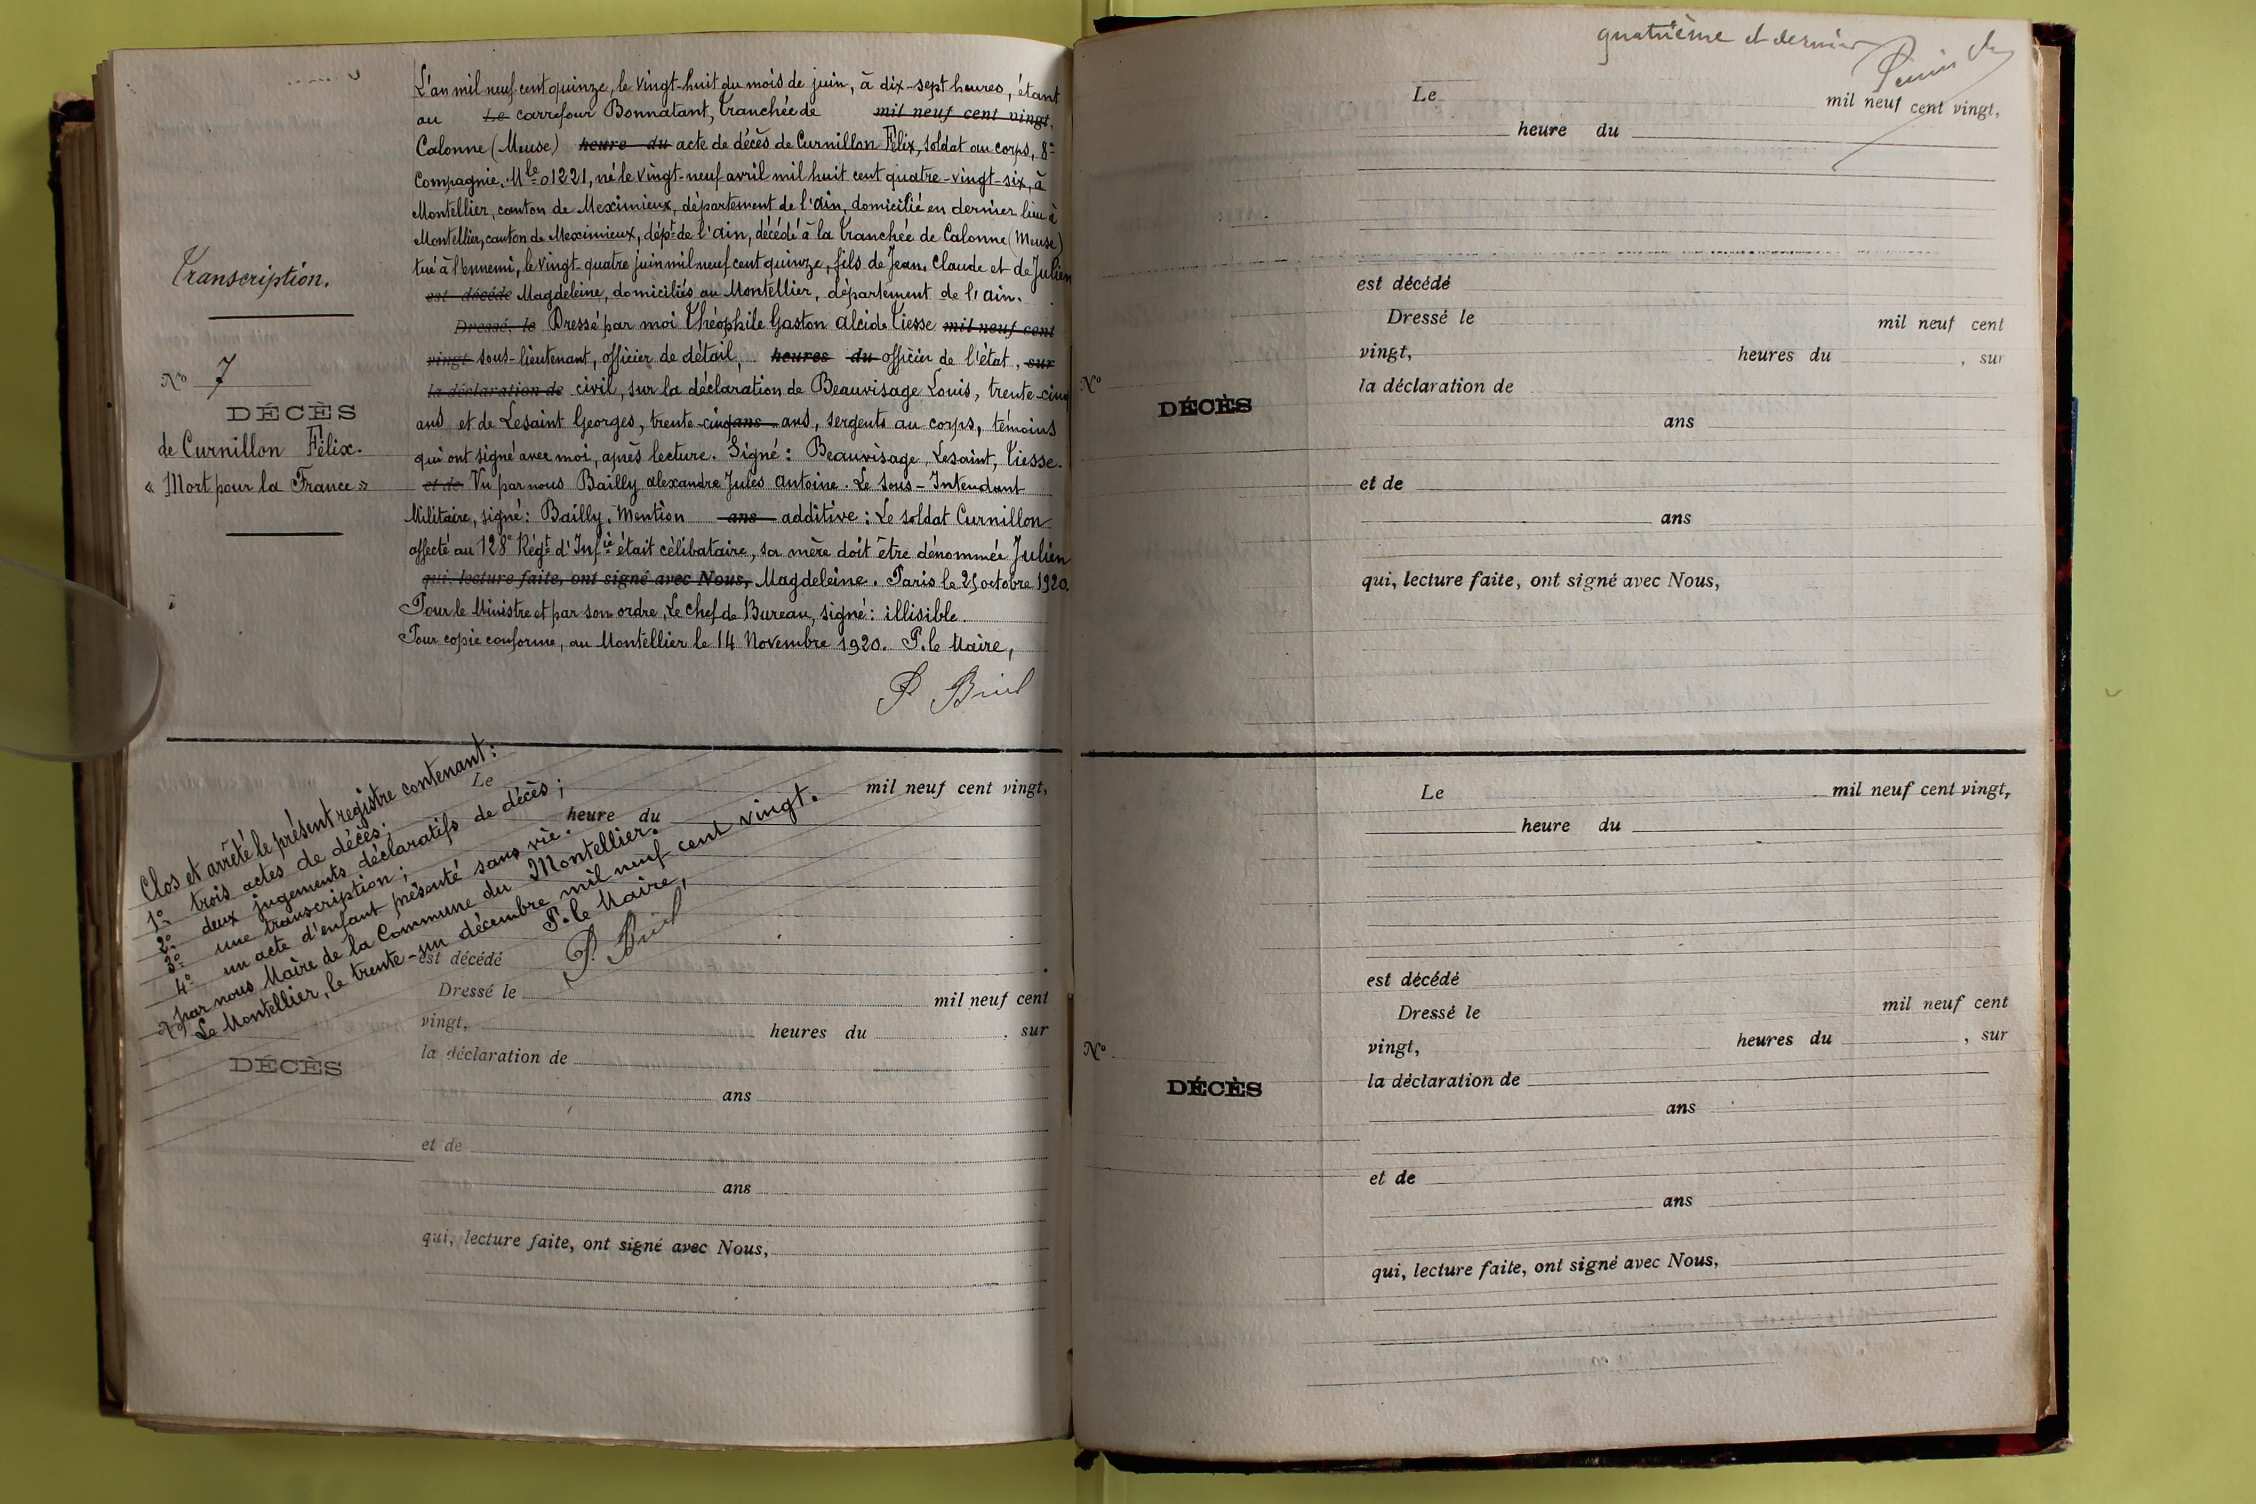 Transcription.
N° 7
DÉCÈS
de Curnillon Félix.
« Mort pour la France »
L'an mil neuf cent quinze, le vingt-huit du mois de juin, à dix-sept heures, étant
au Le carrefour Bonnatant, tranchée de mil neuf cent vingt,
Calonne (Meuse) heure du acte de décès de Curnillon Félix, soldat au corps, 8e
Compagnie, Mle 01221, né le vingt-neuf avril mil huit cent quatre-vingt-six, à
Montellier, canton de Meximieux, département de l'ain, domicilié en dernier lieu à
Montellier, canton de Meximieux, dépt de l'ain, décédé à la tranchée de Calonne (Meuse)
tué à l'ennemi, le vingt-quatre juin mil neuf cent quinze, fils de Jean Claude et de Julien
est décédé Magdeleine, domiciliés au Montellier, département de l'ain.
Dressé, le Dressé par moi Théophile Gaston alcide Tiesse mil neuf cent
vingt sous-lieutenant, officier de détail, heures du officier de l'état, sur
la déclaration de civil, sur la déclaration de Beauvisage Louis, trente-cinq
ans et de Lesaint Georges, trente-cinq ans ans, sergents au corps, témoins
qui ont signé avec moi, après lecture. Signé : Beauvisage, Lesaint, Tiesse.
et de Vu par nous Bailly alexandre Jules antoine. Le Sous-Intendant
Militaire, signé : Bailly. Mention ans additive : Le soldat Curnillon
affecté au 128e Régt d'Infie était célibataire, sa mère doit être dénommée Julien
qui, lecture faite, ont signé avec Nous, Magdeleine. Paris le 25 octobre 1920.
Pour le Ministre et par son ordre, Le Chef de Bureau, signé : illisible.
Pour copie conforme, au Montellier le 14 Novembre 1920. P. le Maire,
P. Briel
Clos et arrêté le présent registre contenant :
1° trois actes de décès ;
2° deux jugements déclaratifs de décès ;
3° une transcription ;
4° un acte d'enfant présenté sans vie.
par nous Maire de la Commune du Montellier.
Le Montellier, le trente-un décembre mil neuf cent vingt.
P. le Maire,
P. Briel
N°
DÉCÈS
Le
mil neuf cent vingt,
heure du
est décédé
Dressé le
mil neuf cent
vingt,
heures du , sur
la déclaration de
ans
et de
ans
qui, lecture faite, ont signé avec Nous,
quatrième et dernier
N°
DÉCÈS
Le mil neuf cent vingt,
heure du
est décédé
Dressé le mil neuf cent
vingt, heures du , sur
la déclaration de
ans
et de
ans
qui, lecture faite, ont signé avec Nous,
N°
DÉCÈS
Le mil neuf cent vingt,
heure du
est décédé
Dressé le mil neuf cent
vingt, heures du , sur
la déclaration de
ans
et de
ans
qui, lecture faite, ont signé avec Nous,